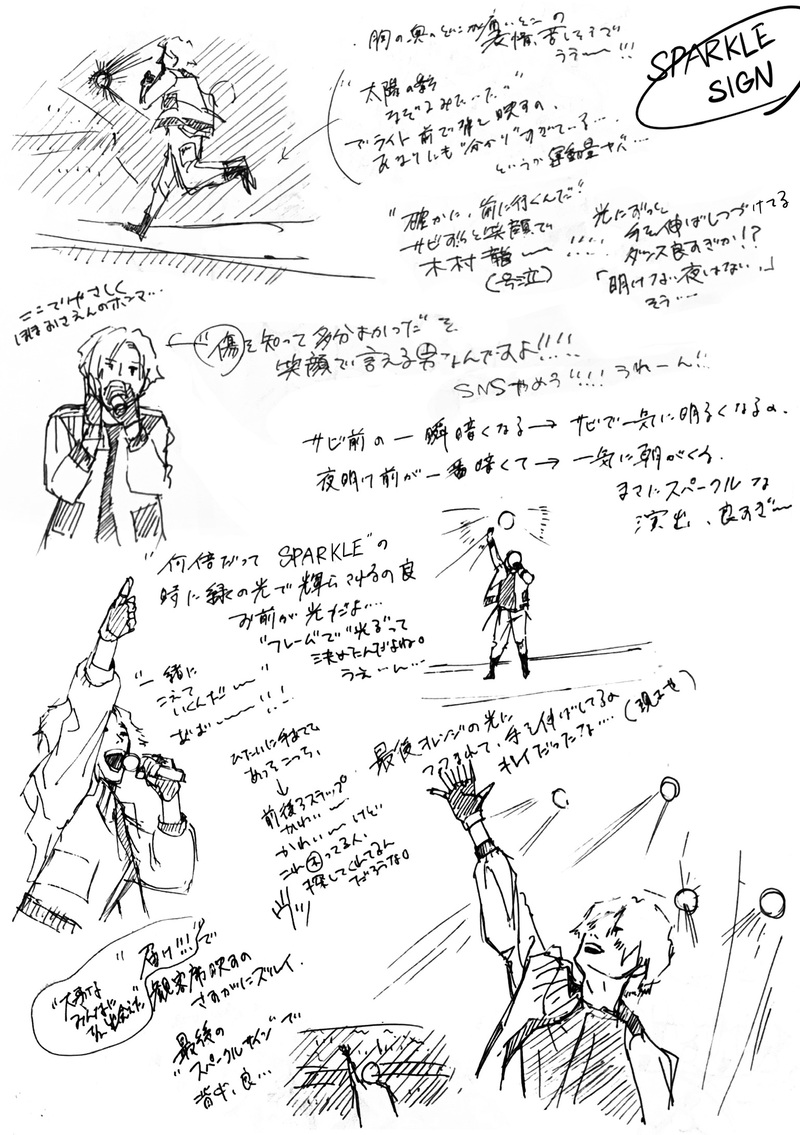 SPARKLE
SIGN
胸の奥のどこか痛いとこの
表情、苦しそうで
うぇ〜!!!
"太陽の影
なぞってみたいな"
でライト前で背を映すの、
あまりにも"分かり"すぎている…
というか運動量ヤバ…
"確かに、前に行くんだ"
サビずっと笑顔で
木村龍〜!!!!
(号泣)
光にずっと
手を伸ばしつづけてる
ダンス良すぎか!?
「明けない夜はない。」
そう…
ここでやさしく
ほほおさえんのホンマ…
"傷を知って多分よかった"を
笑顔で言える男なんですよ!!!!
SNSやめろ!!!! うれーん!!
サビ前の一瞬暗くなる→サビで一気に明るくなるの、
夜明け前が一番暗くて→一気に朝がくる、
まさにスパークルな
演出、良すぎ〜
"何倍だって SPARKLE"の
時に緑の光で輝らされるの良
お前が光だよ…
"フレームで"光る"って
決めたんだよね。
うぇ〜ん…
"一緒に
こえて
いくんだ〜"
ああ〜!!!
ひたいに手あてて
あっちこっち、
↓
前後ろステップ
かわい〜
かわい〜けど
これ㊍ってる人、
探してくれてるん
だろうな。
最後オレンジの光に
つつまれて、手を伸ばしてるの
キレイだったな… (現ませ)
"届け!!!"で
観客席映すの
さすがにズルイ。
"大事な
みんなに
出会えた"
"最後の
"スパークルサイン"で
背中、良…